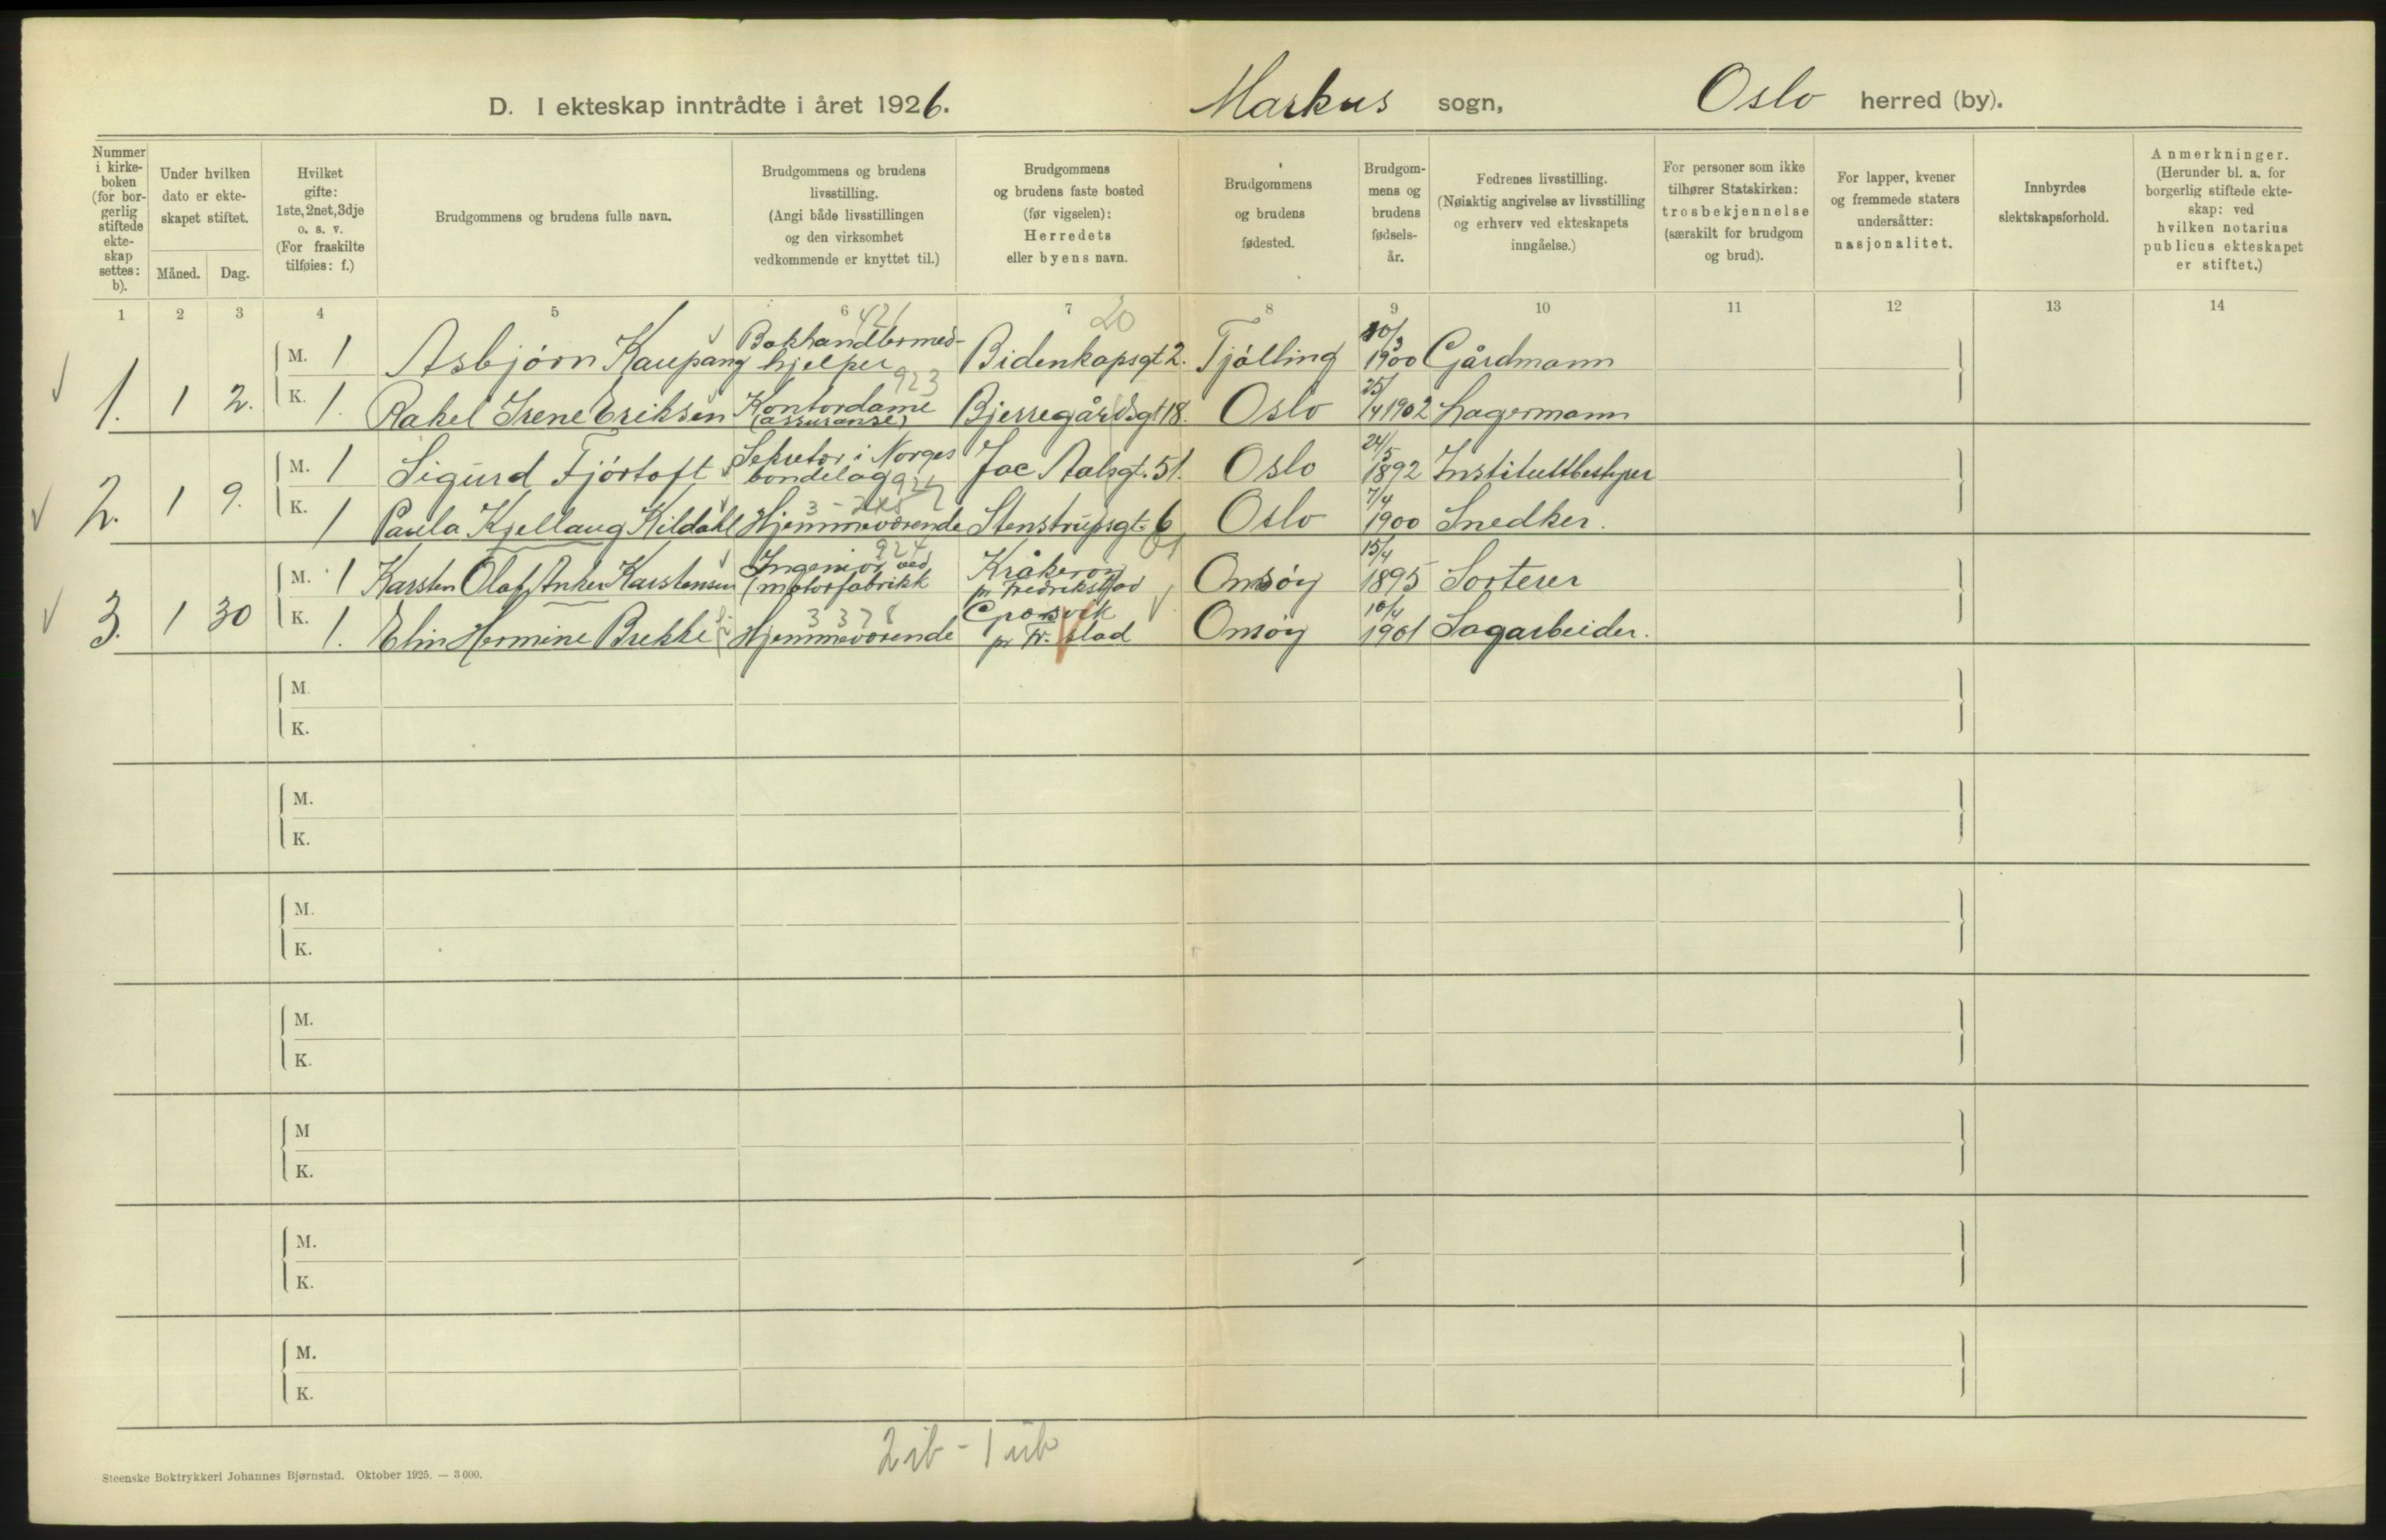 D. I ekteskap inntrådte i året 1926. Markus sogn, Oslo herred (by).
Nummer i kirke- boken (for bor- gerlig stiftede ekte- skap settes: b).
Under hvilken dato er ekte- skapet stiftet.
Måned. Dag.
Hvilket gifte: 1ste, 2net, 3dje o. s. v. (For fraskilte tilføies: f.)
Brudgommens og brudens fulle navn.
Brudgommens og brudens livsstilling. (Angi både livsstillingen og den virksomhet vedkommende er knyttet til.)
Brudgommens og brudens faste bosted (før vigselen): Herredets eller byens navn.
Brudgommens og brudens fødested.
Brudgom- mens og brudens fødsels- år.
Fedrenes livsstilling. (Nøiaktig angivelse av livsstilling og erhverv ved ekteskapets inngåelse.)
For personer som ikke tilhører Statskirken: trosbekjennelse (særskilt for brudgom og brud).
For lapper, kvener og fremmede staters undersåtter: nasjonalitet.
Innbyrdes slektskapsforhold.
Anmerkninger. (Herunder bl. a. for borgerlig stiftede ekte- skap: ved hvilken notarius publicus ekteskapet er stiftet.)
1 2 3 4 5 6 7 8 9 10 11 12 13 14
421 20
1. 1 2. M. 1 Asbjørn Kaupang Bokhandlermed- hjelper Bidenkapsgt 2. Tjølling 10/3 1900 Gårdmann
923
K. 1. Rakel Irene Eriksen Kontordame (assuranse) Bjerregårdsgt 18. Oslo 25/4 1902 Lagermann
2. 1 9. M. 1 Sigurd Fjørtoft Sekretær i Norges bondelag Jac Aalsgt. 51. Oslo 24/5 1892 Instituttbestyrer
K. 1 Paula Kjellaug Kildahl Hjemmeværende Stenstrupsgt. 6 Oslo 7/4 1900 Snedker.
924
3. 1 30 M. 1 Karsten Olaf Anker Karstensen Ingeniør ved motorfabrikk Kråkerøy pr Fredrikstad Onsøy 15/4 1895 Sorterer
3378
K. 1. Elin Hermine Brekke Hjemmeværende Gressvik pr Fr. stad Onsøy 10/4 1901 Sagarbeider.
M.
K.
M.
K.
M.
K.
M.
K.
M
K.
M.
K.
M.
K.
2 ib - 1 ub
Steenske Boktrykkeri Johannes Bjørnstad. Oktober 1925. — 3000.